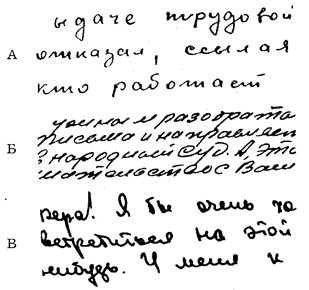 ыдаче трудовой
А отказал, ссылая
кто работает
разобрата
письма и направляет
Б народный суд. А, это
с Ваш
вера! Я бы очень хо
В встретиться на этой
нибудь. У меня к